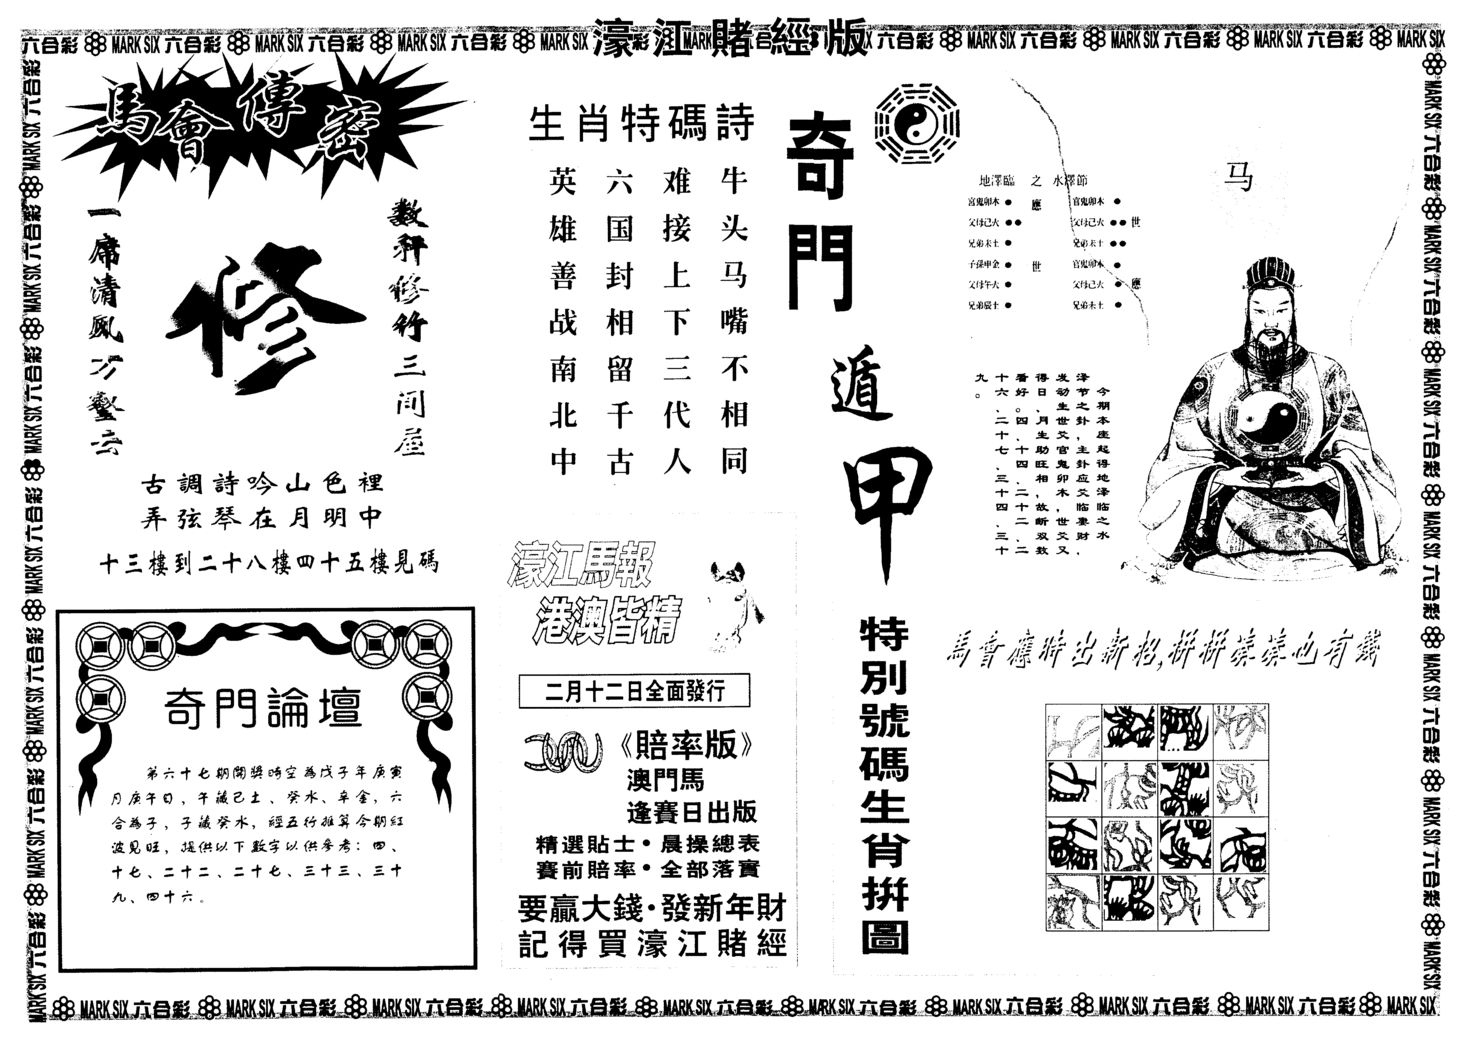 濠江賭經版
六合彩 MARK SIX 六合彩 MARK SIX 六合彩 MARK SIX 六合彩 MARK SIX 六合彩 MARK SIX
馬會傳密
数秤修行三间屋
修
一席清風万壑云
古調詩吟山色裡
弄弦琴在月明中
十三樓到二十八樓四十五樓見碼
奇門論壇
第六十七期開獎時空為戊子年庚寅
月庚午日，午藏己土、癸水、辛金，六
合為子，子藏癸水，經五行推算今期紅
波見旺，提供以下數字以供參考：四、
十七、二十二、二十七、三十三、三十
九、四十六。
生肖特碼詩
牛头马嘴不相同
难接上下三代人
六国封相留千古
英雄善战南北中
濠江馬報
港澳皆精
二月十二日全面發行
《賠率版》
澳門馬
逢賽日出版
精選貼士•晨操總表
賽前賠率•全部落實
要贏大錢·發新年財
記得買濠江賭經
奇門遁甲
地澤臨 之 水澤節
官鬼卯木 ● 應 官鬼卯木 ●
父母己火 ●● 父母己火 ●● 世
兄弟未土 ● 兄弟未土 ●●
子孫申金 ● 世 官鬼卯木 ●
父母午火 ● 父母己火 ● 應
兄弟辰土 ● 兄弟未土 ●
马
今期本座起得地泽临之水
泽节之卦，主卦应爻临妻财，
发动生世爻官鬼卯木，世爻又
得日、月生助旺相，故断双数
看好。四、十四、二十二、二
十六、二十七、三十四、三十
九。
特別號碼生肖拼圖
馬會應時出新招,拼拼湊湊也有識
六合彩 MARK SIX 六合彩 MARK SIX 六合彩 MARK SIX 六合彩 MARK SIX